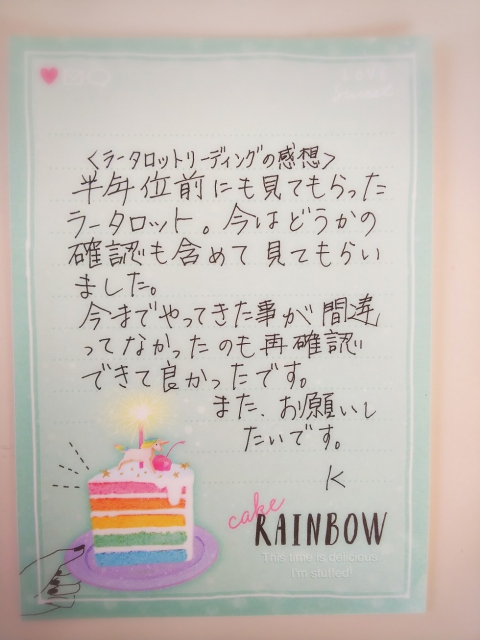 〈ラータロットリーディングの感想〉
半年位前にも見てもらった
ラータロット。今はどうかの
確認も含めて見てもらい
ました。
今までやってきた事が間違
ってなかったのも再確認
できて良かったです。
また、お願いし
たいです。
K
cake
RAINBOW
This time is delicious
I'm stuffed!